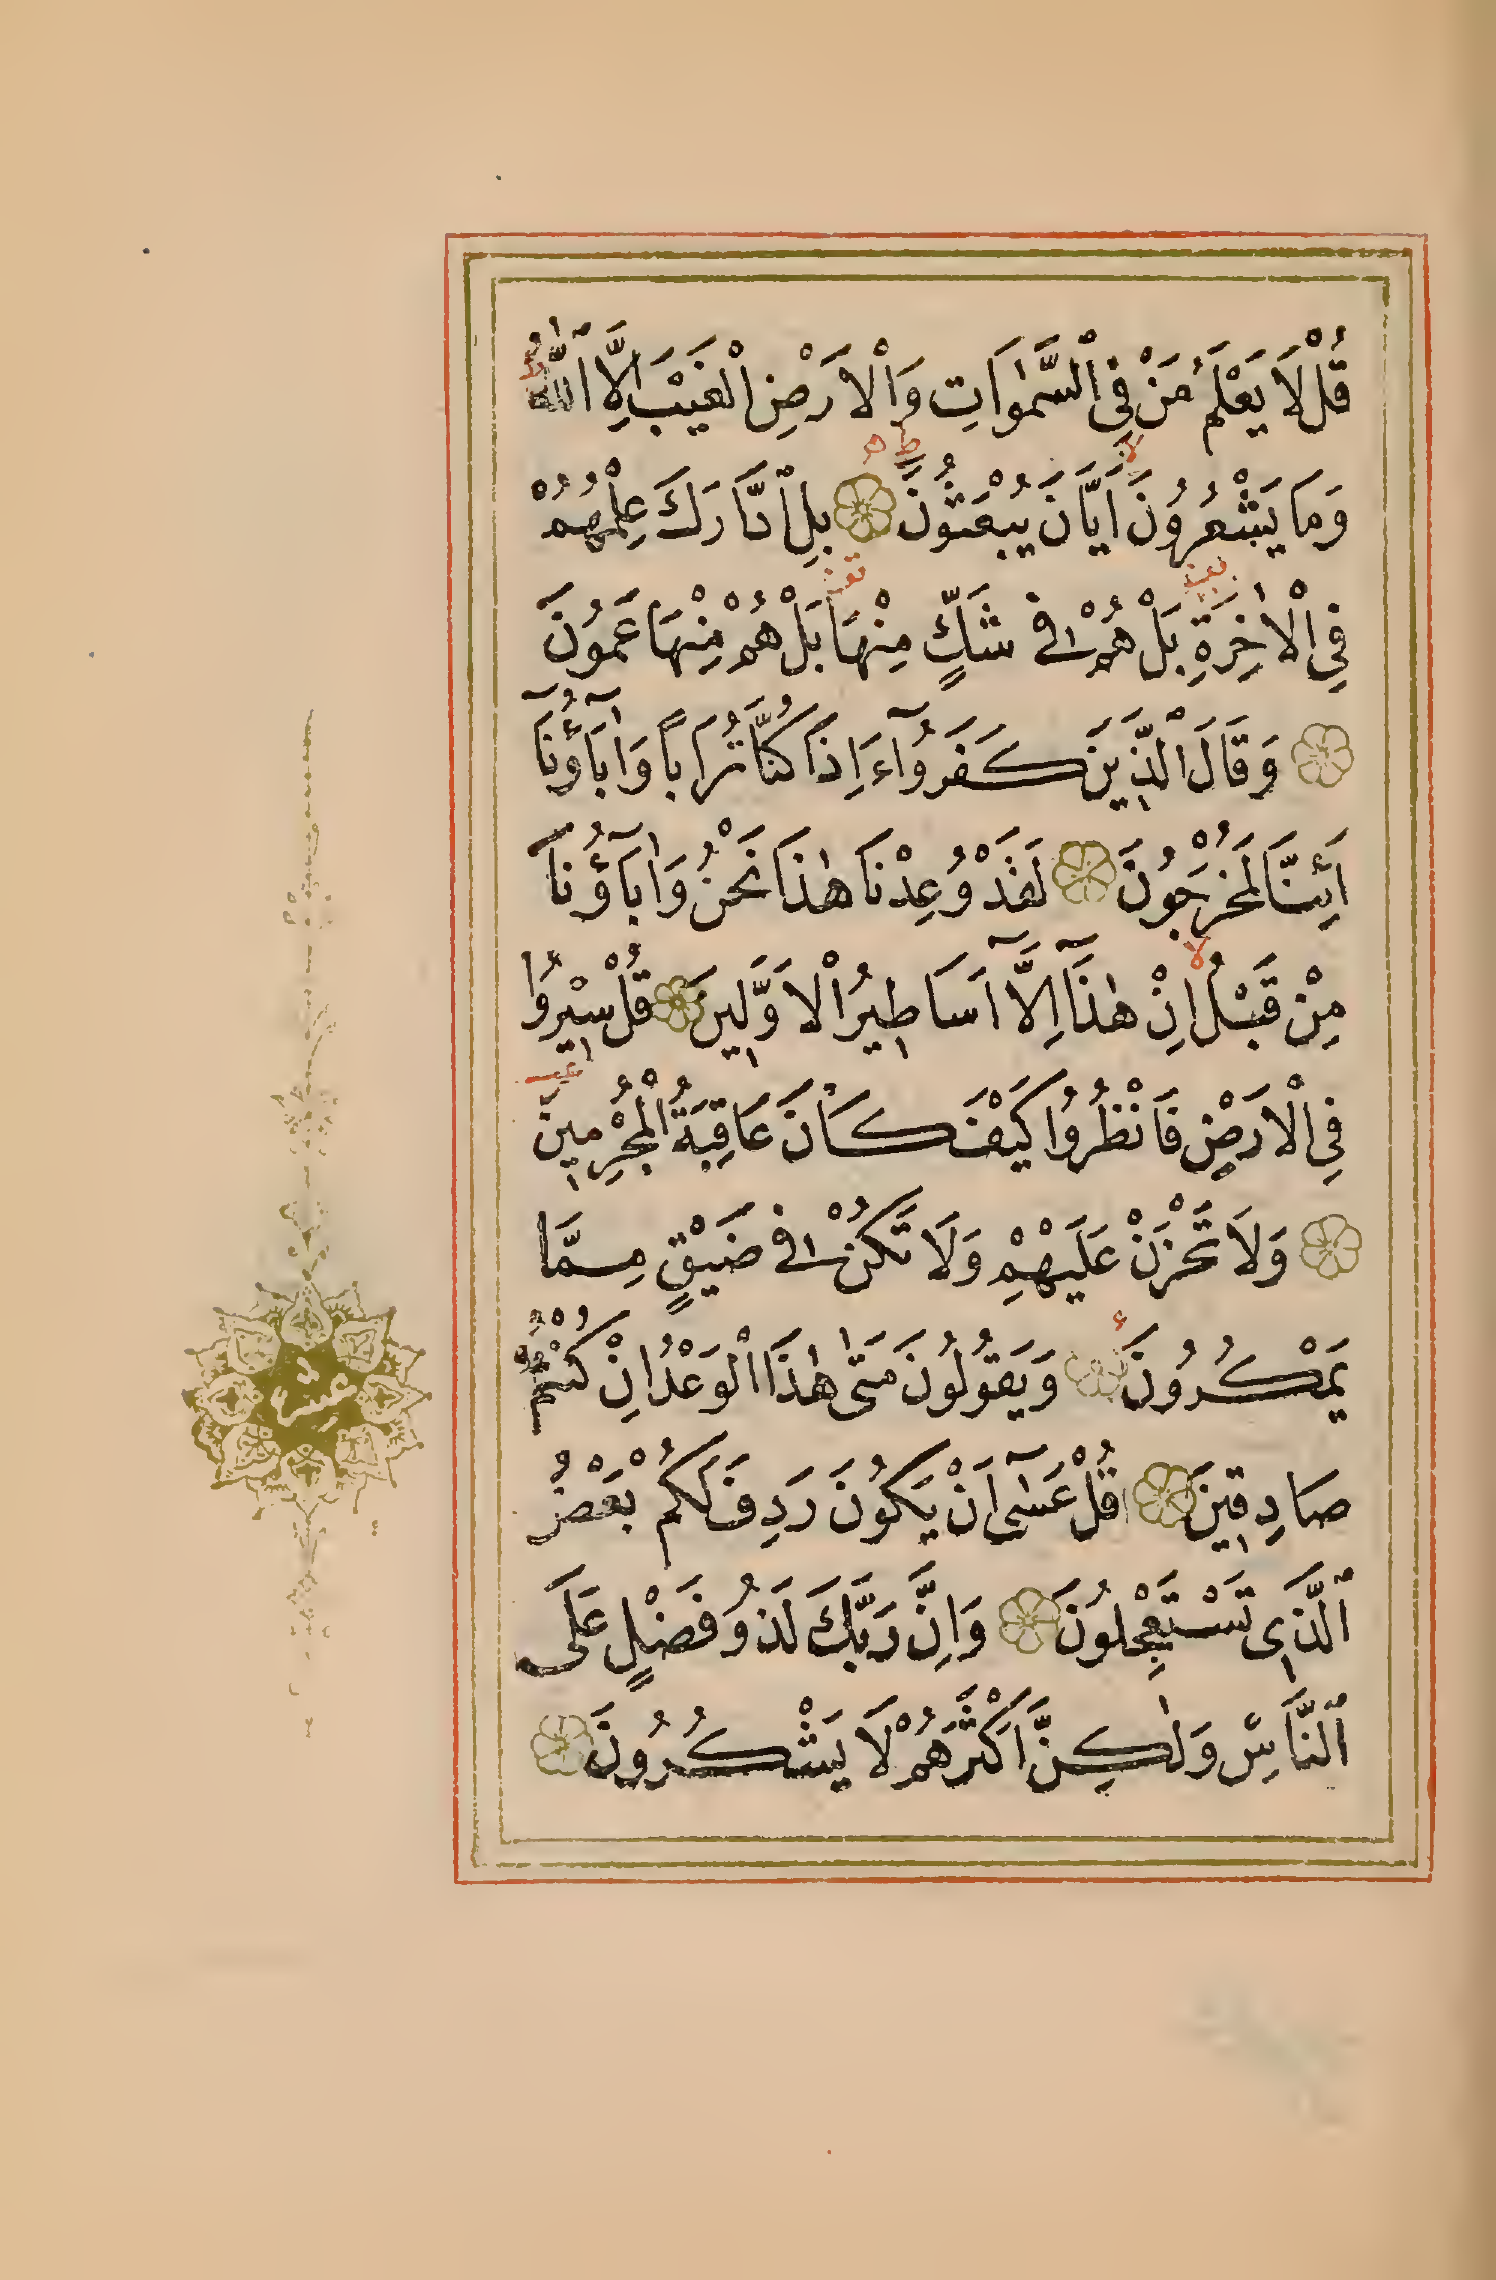 قُلْ لَا يَعْلَمُ مَنْ فِي ٱلسَّمٰوَاتِ وَالْاَرْضِ الْغَيْبَ اِلَّا ٱللّٰهُ ط
وَمَا يَشْعُرُونَ اَيَّانَ يُبْعَثُونَ ۝ بَلِ ٱدَّارَكَ عِلْمُهُمْ
فِي الْاٰخِرَةِ بَلْ هُمْ فِي شَكٍّ مِنْهَا بَلْ هُمْ مِنْهَا عَمُونَ
۝ وَقَالَ ٱلَّذِينَ كَفَرُوآ ءَاِذَا كُنَّا تُرَاباً وَاٰبَآؤُنَآ
اَئِنَّا لَمُخْرَجُونَ ۝ لَقَدْ وُعِدْنَا هٰذَا نَحْنُ وَاٰبَآؤُنَا
مِنْ قَبْلُ اِنْ هٰذَآ اِلَّآ اَسَاطِيرُ الْاَوَّلِينَ ۝ قُلْ سِيرُوا
فِي الْاَرْضِ فَانْظُرُوا كَيْفَ كَانَ عَاقِبَةُ الْمُجْرِمِينَ
۝ وَلَا تَحْزَنْ عَلَيْهِمْ وَلَا تَكُنْ فِي ضَيْقٍ مِمَّا
يَمْكُرُونَ ۝ وَيَقُولُونَ مَتٰى هٰذَا الْوَعْدُ اِنْ كُنْتُمْ
صَادِقِينَ ۝ قُلْ عَسٰٓى اَنْ يَكُونَ رَدِفَ لَكُمْ بَعْضُ
ٱلَّذِي تَسْتَعْجِلُونَ ۝ وَاِنَّ رَبَّكَ لَذُو فَضْلٍ عَلَى
ٱلنَّاسِ وَلٰكِنَّ اَكْثَرَهُمْ لَا يَشْكُرُونَ ۝